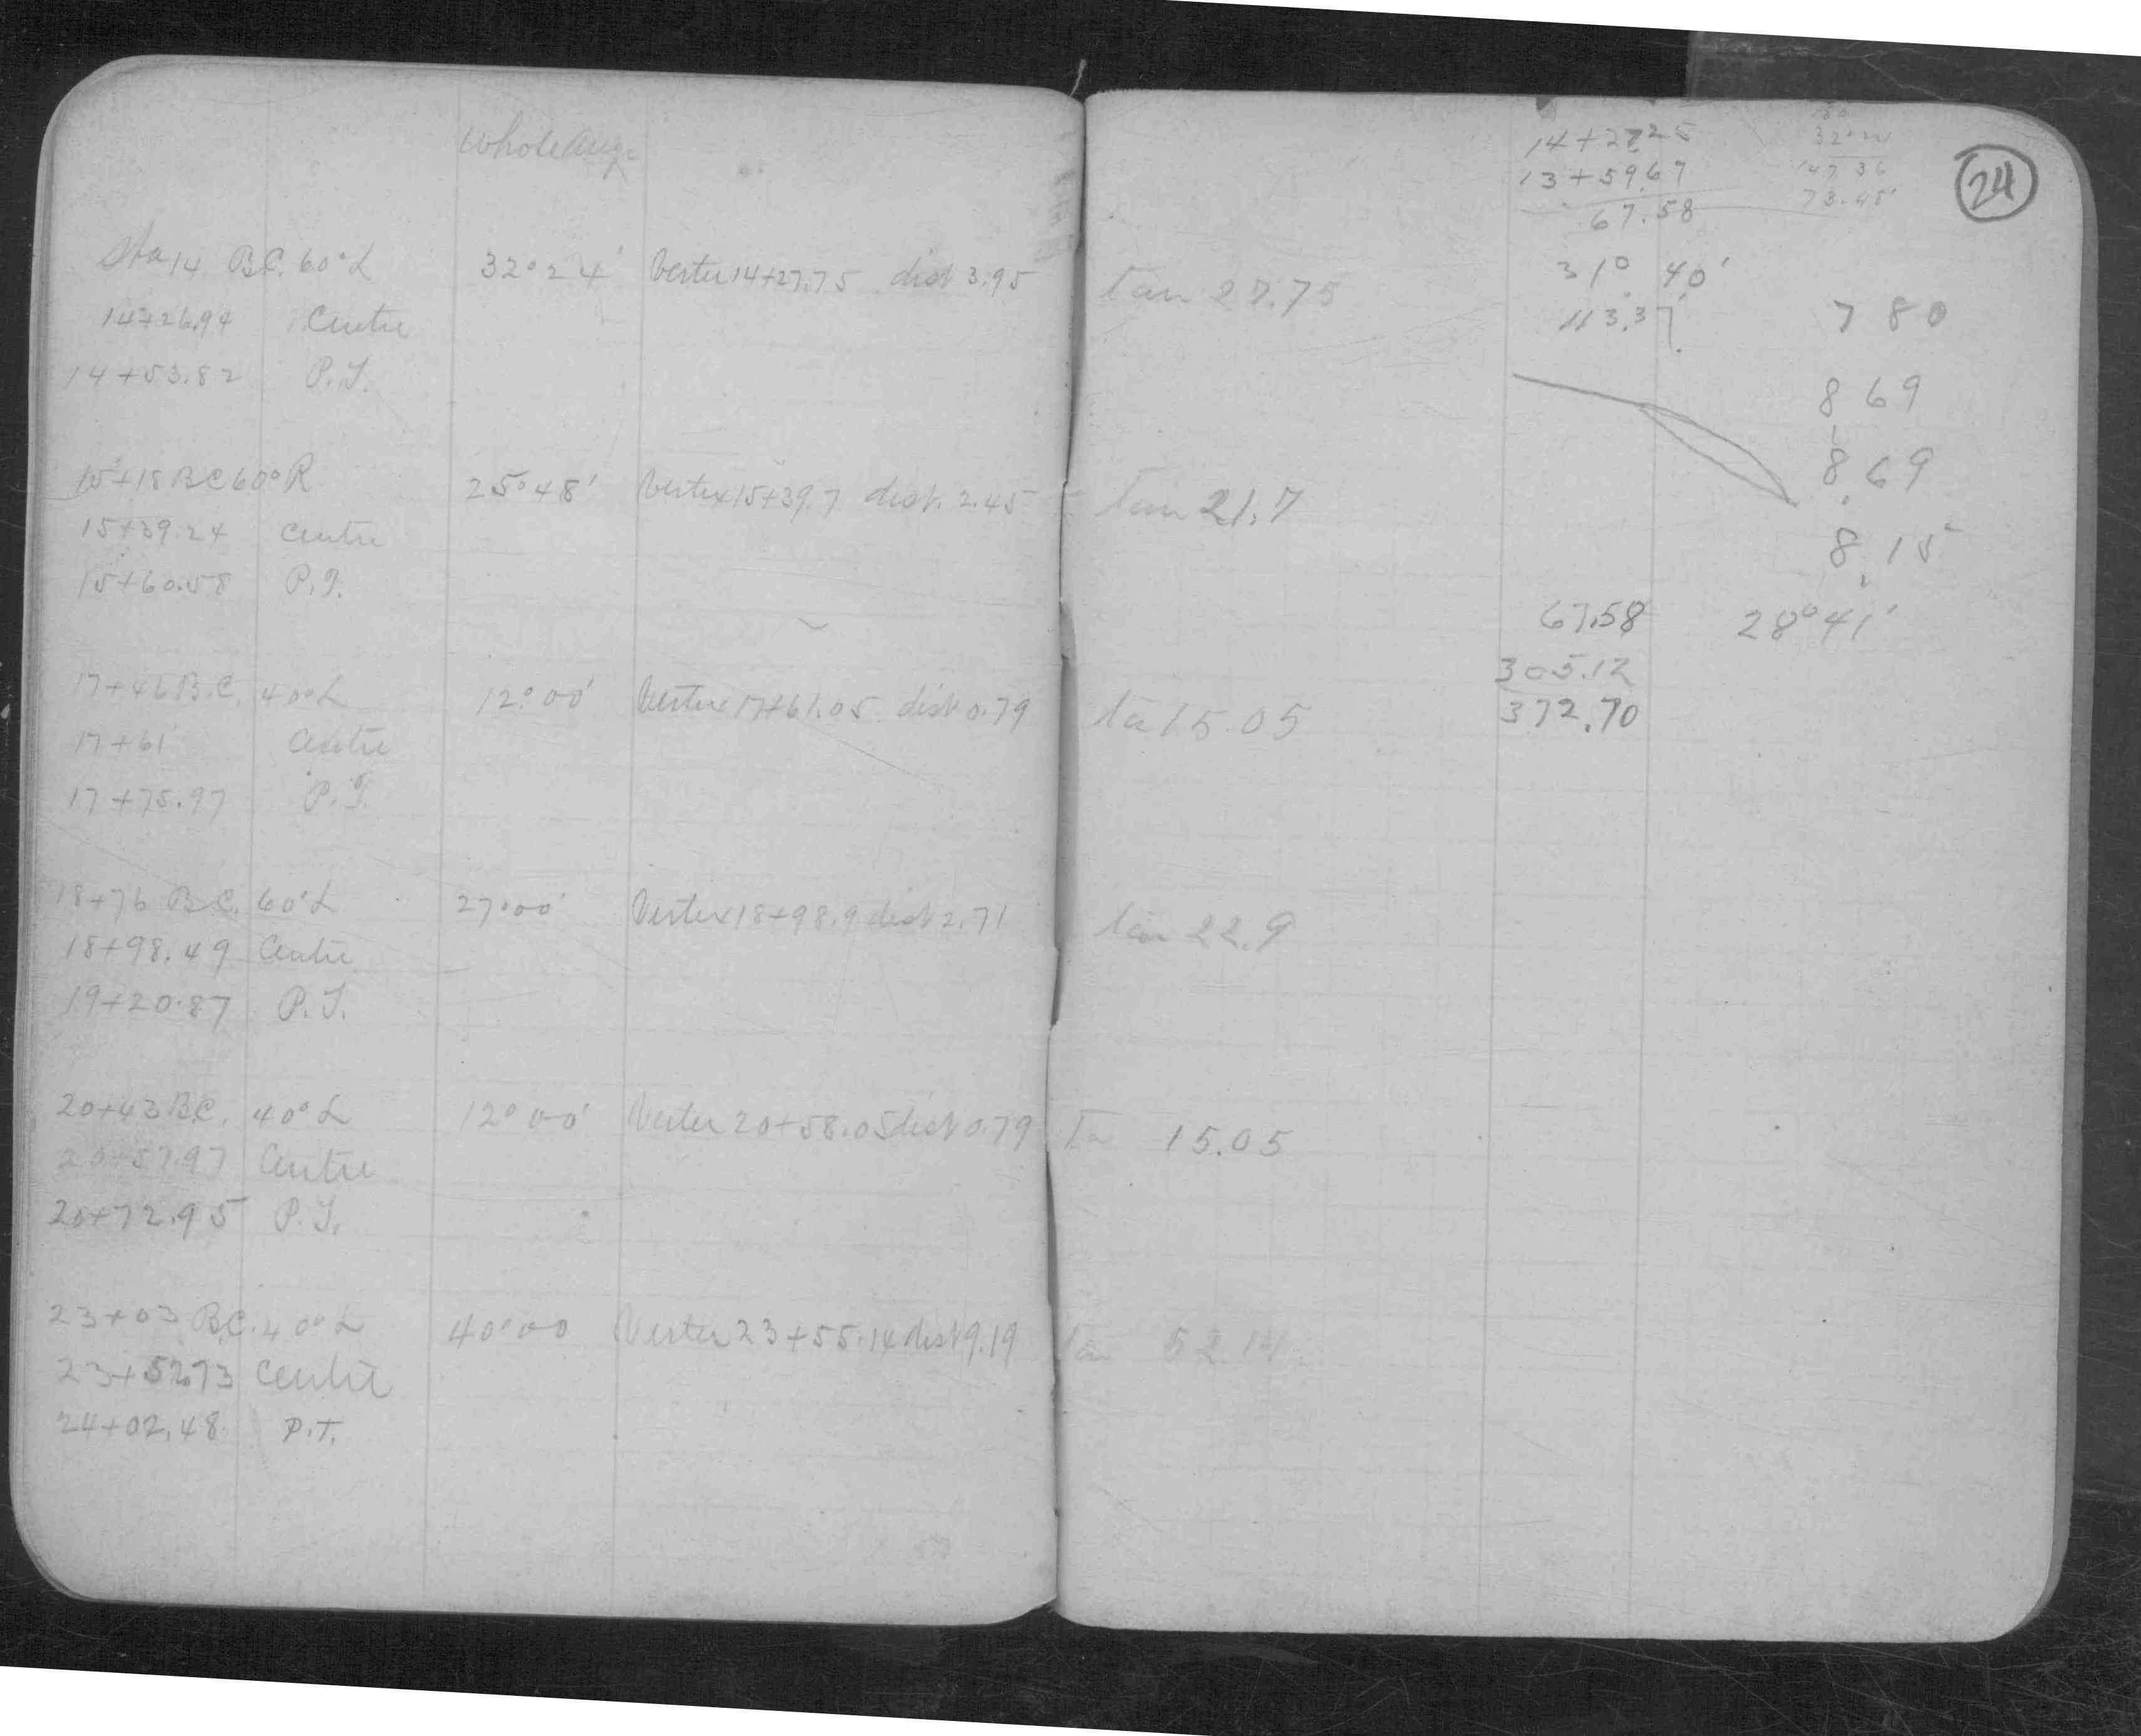 Whole Ang.
Sta 14 B.C. 60° L 32° 24' Vertex 14+27.75 dist 3.95 tan 27.75
14+26.94 Centre
14+53.82 P.T.
15+18 B.C 60° R 25° 48' Vertex 15+39.7 dist. 2.45 tan 21.7
15+39.24 Centre
15+60.58 P.T.
17+46 B.C. 40° L 12° 00' Vertex 17+61.05 dist 0.79 ta 15.05
17+61 Centre
17+75.97 P.T.
18+76 B.C. 60° L 27° 00' Vertex 18+98.9 dist 2.71 tan 22.9
18+98.49 Centre
19+20.87 P.T.
20+43 B.C. 40° L 12° 00' Vertex 20+58.05 dist 0.79 Ta 15.05
20+57.97 Centre
20+72.95 P.T.
23+03 B.C. 40° L 40° 00 Vertex 23+55.14 dist 9.19 tan 52.14
23+52.73 Centre
24+02.48 P.T.
24
14+27.25
13+59.67
67.58
180
147 36
73.48'
31° 40'
113.37'
780
869
8.69
8.15
67.58 28° 41'
305.12
372.70